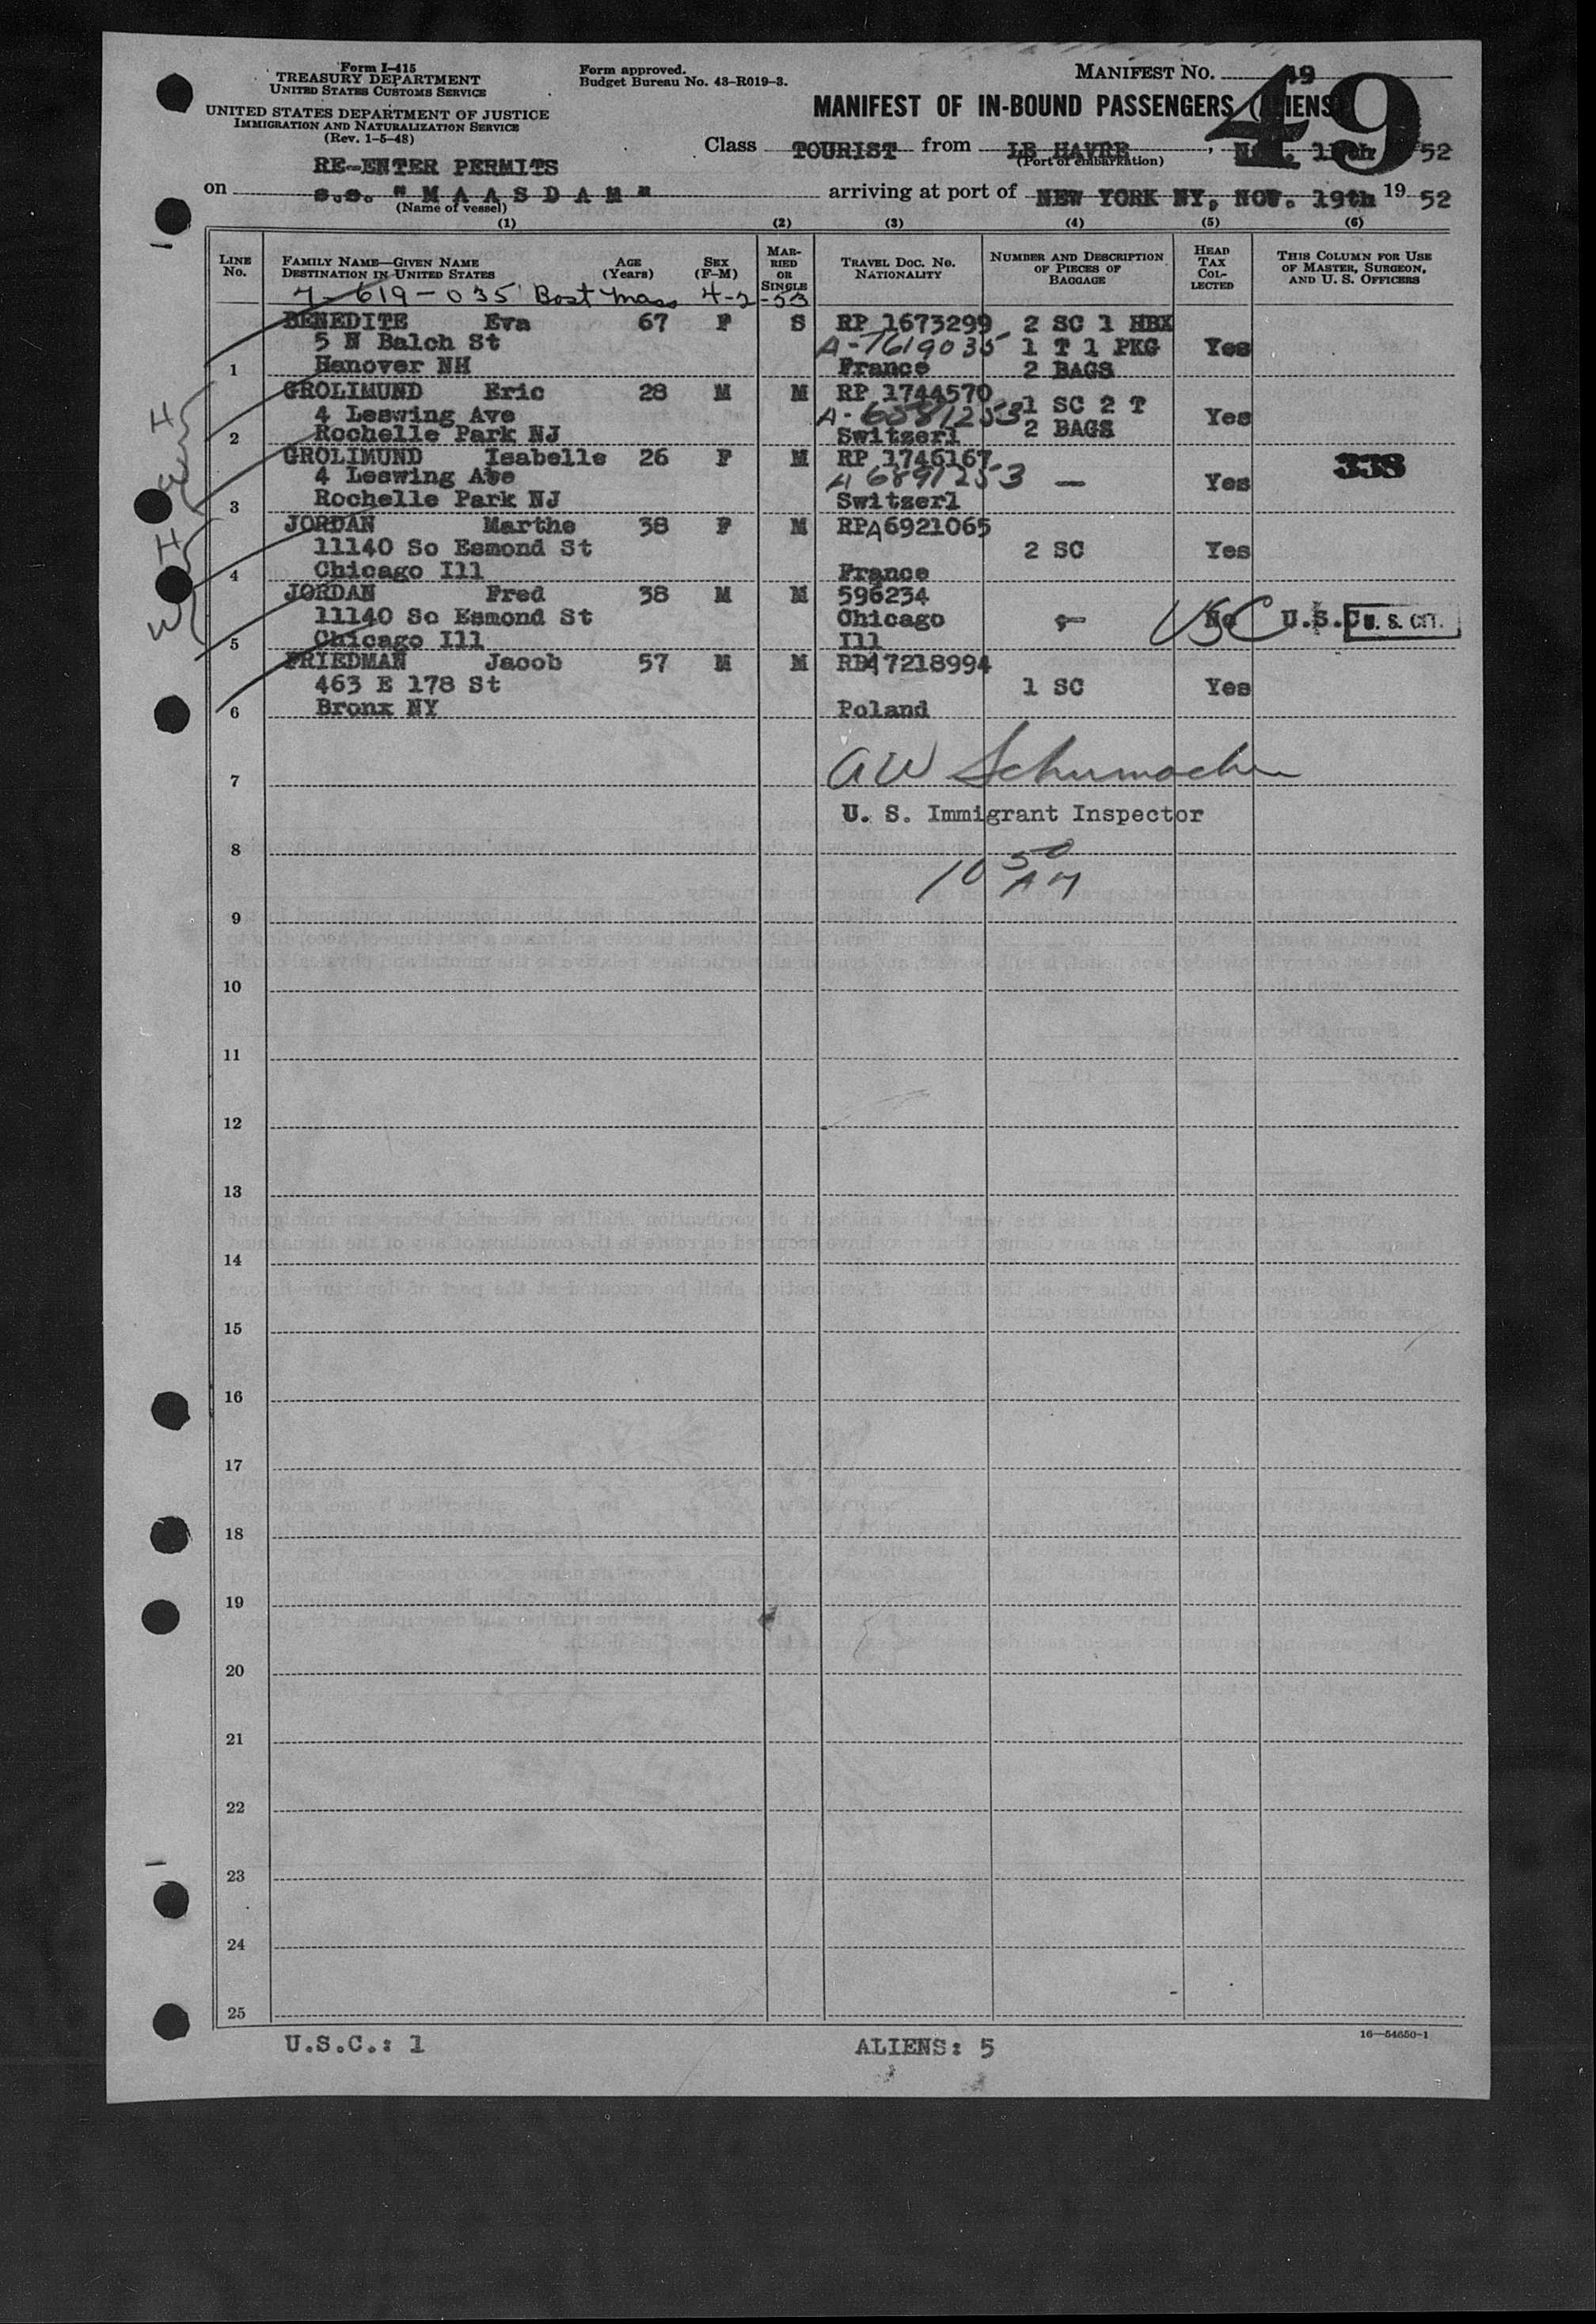 Form I-415
TREASURY DEPARTMENT
UNITED STATES CUSTOMS SERVICE
UNITED STATES DEPARTMENT OF JUSTICE
IMMIGRATION AND NATURALIZATION SERVICE
(Rev. 1-5-48)
Form approved.
Budget Bureau No. 43-R019-3.
MANIFEST NO. 49
49
MANIFEST OF IN-BOUND PASSENGERS
Class TOURIST from LE HAVRE, 52
(Port of embarkation)
RE-ENTER PERMITS
on s.s. "M A A S D A M" arriving at port of NEW YORK NY, NOV. 19th 19 52
(Name of vessel)
(1) (2) (3) (4) (5) (6)
LINE No.
FAMILY NAME—GIVEN NAME
DESTINATION IN UNITED STATES
AGE (Years)
SEX (F-M)
MARRIED OR SINGLE
TRAVEL DOC. No.
NATIONALITY
NUMBER AND DESCRIPTION OF PIECES OF BAGGAGE
HEAD TAX COLLECTED
THIS COLUMN FOR USE OF MASTER, SURGEON, AND U. S. OFFICERS
7-619-035 Bost Mass 4-2-53
BENEDITE Eva 67 F S RP 1673299 2 SC 1 HBX
5 N Balch St A-7619035 1 T 1 PKG Yes
1 Hanover NH France 2 BAGS
GROLIMUND Eric 28 M M RP 1744570
4 Leswing Ave 1 SC 2 T Yes
2 Rochelle Park NJ Switzerl 2 BAGS
GROLIMUND Isabelle 26 F M RP 1746167 338
4 Leswing Ave A 6891253 — Yes
3 Rochelle Park NJ Switzerl
JORDAN Marthe 38 F M RPA6921065
11140 So Esmond St 2 SC Yes
4 Chicago Ill France
JORDAN Fred 38 M M 596234
11140 So Esmond St Chicago No USC U.S.C. U. S. CIT.
5 Chicago Ill Ill
FRIEDMAN Jacob 57 M M 7218994
463 E 178 St 1 SC Yes
6 Bronx NY Poland
7 AW Schumacher
U. S. Immigrant Inspector
8
10 50 AM
9
10
11
12
13
14
15
16
17
18
19
20
21
22
23
24
25
U.S.C.: 1 ALIENS: 5
16—54650-1